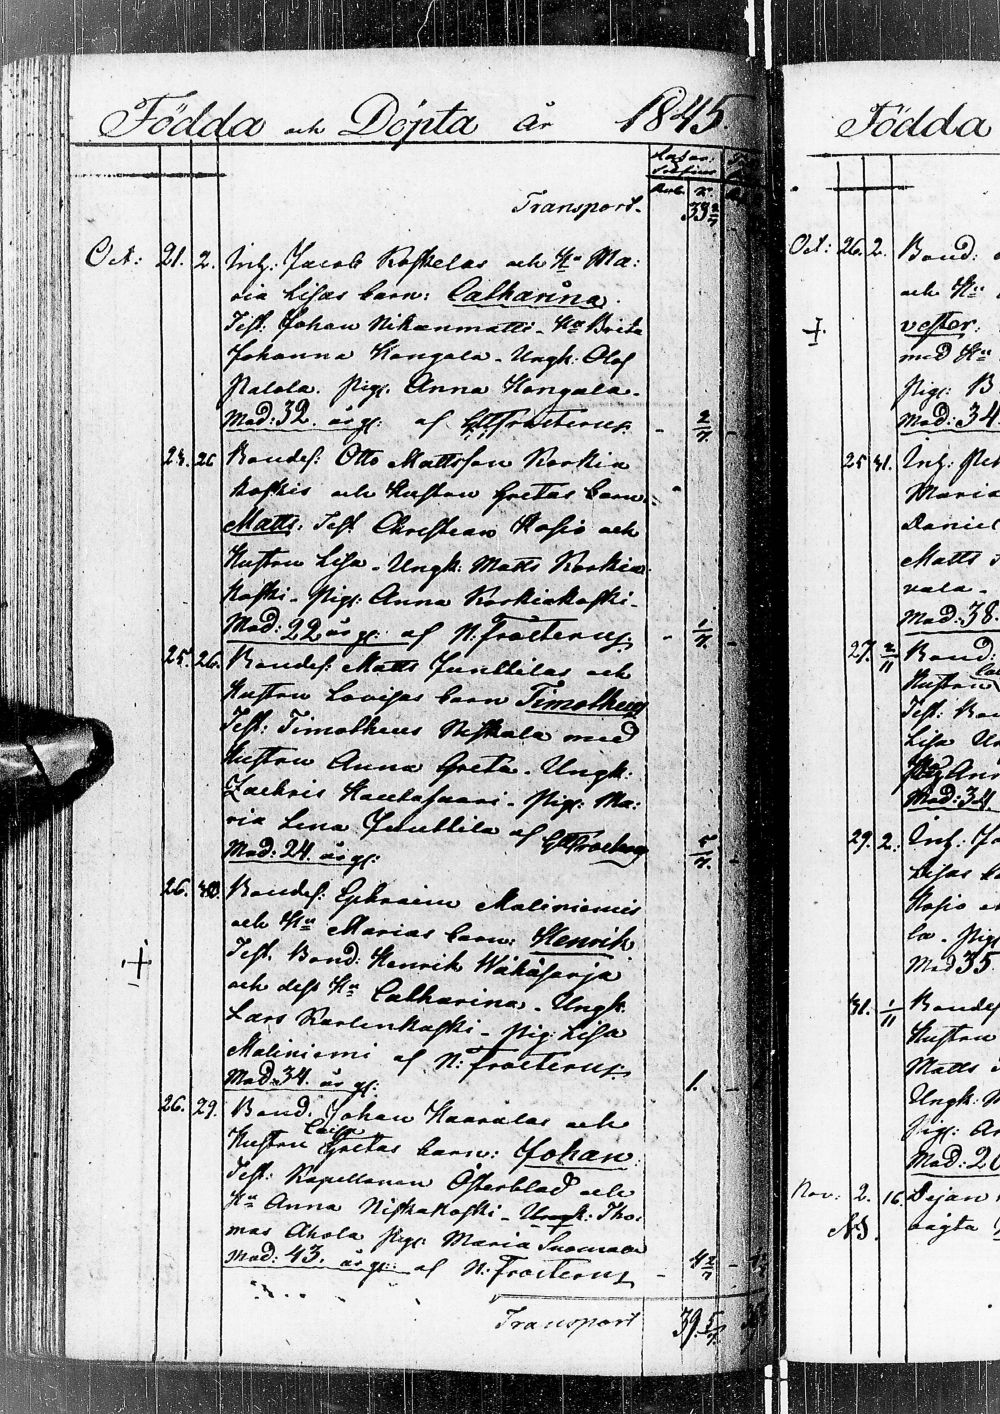 Födda och Döpta år 1845.
Transport.
33 2/7
Oct: 21. 2. Inh: Jacob Koskelas och Hu Ma:
ria Lisas barn: Catharina.
Test: Johan Nikanmatti. Hu Brita
Johanna Kangala. Ungk: Olof
Palola. Pig: Anna Kangala.
Mod: 32. år gl: af Frosterus. 2/7
23. 26 Bondes: Otto Mattsson Korkia
koskis och Hustru Gretas barn
Matts. Test. Christian Kosio och
Hustru Lisa. Ungk: Matts Korkia
koski. Pig: Anna Korkiakoski.
Mod: 22 år gl: af N. Frosterus 1/7.
25. 26. Bondes: Matts Junttilas och
Hustru Lovisas barn Timotheus
Test: Timotheus Niskala med
Hustru Anna Greta. Ungk:
Zachris Hautajuari. Pig: Ma:
ria Lena Junttila af
Mod: 24. år gl: 5/7.
26. 30. Bondes: Ephraim Maliniemis
och Hu Marias barn: Henrik
Test. Bond: Henrik Wähäsarja
och dess Hu Catharina. Ungk:
Lars Karlenkoski. Pig: Lisa
Maliniemi af N: Frosterus
Mod: 34. år gl: 1.
26. 29. Bond. Johan Kaaralas och
Caisa
Hustru Gretas barn: Johan.
Test: Kapellanen Österblad och
Hu Anna Niskakoski. Ungk: Tho:
mas Ahola Pig: Maria Suomala
Mod: 43. år gl: af N: Frosterus 4 2/7
Transport 39. 5/7.
Födda
Oct: 26. 2. Bond:
och Hu
med Hu
Pig: B
Mod: 34.
25 31. Inh:
Maria
Daniel
Matts
vala.
Mod: 38.
27. 2/11 Bond:
Hustru
Test: Bon
Lisa Un
Ann
Mod: 34.
29. 2. Inh: Jo
Lisas b
Kosio
la. Pig
Mod 35
31. 1/11 Bondes
Hustru
Matts
Ungk: M
Pig: An
Mod: 20
Nov: 2. 16. Dejan